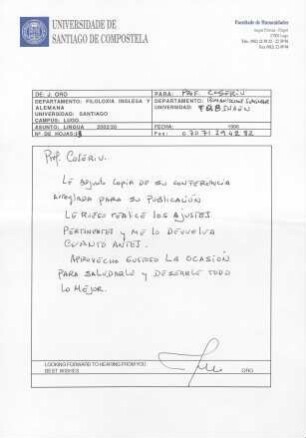 UNIVERSIDADE DE
SANTIAGO DE COMPOSTELA
Facultade de Humanidades
27002 Lugo
DE: J. ORO
PARA: PROF. COSERIU
DEPARTAMENTO: FILOLOXIA INGLESA Y
ALEMANA
DEPARTAMENTO:
UNIVERSIDAD: SANTIAGO
UNIVERSIDAD:
CAMPUS: LUGO
ASUNTO: LINGUA
FECHA:
Nº DE HOJAS:
Fax:
Prof. Coseriu.
LE adjunto copia DE SU CONFERENCIA
arreglada PARA SU PUBLICACIÓN
LE RUEGO REALICE LOS AJUSTES
PERTINENTES y ME LO DEVUELVA
CUANTO ANTES.
APROVECHO GUSTOSO LA OCASIÓN
PARA SALUDARLE y DESEARLE TODO
LO MEJOR.
LOOKING FORWARD TO HEARING FROM YOU
BEST WISHES
ORO